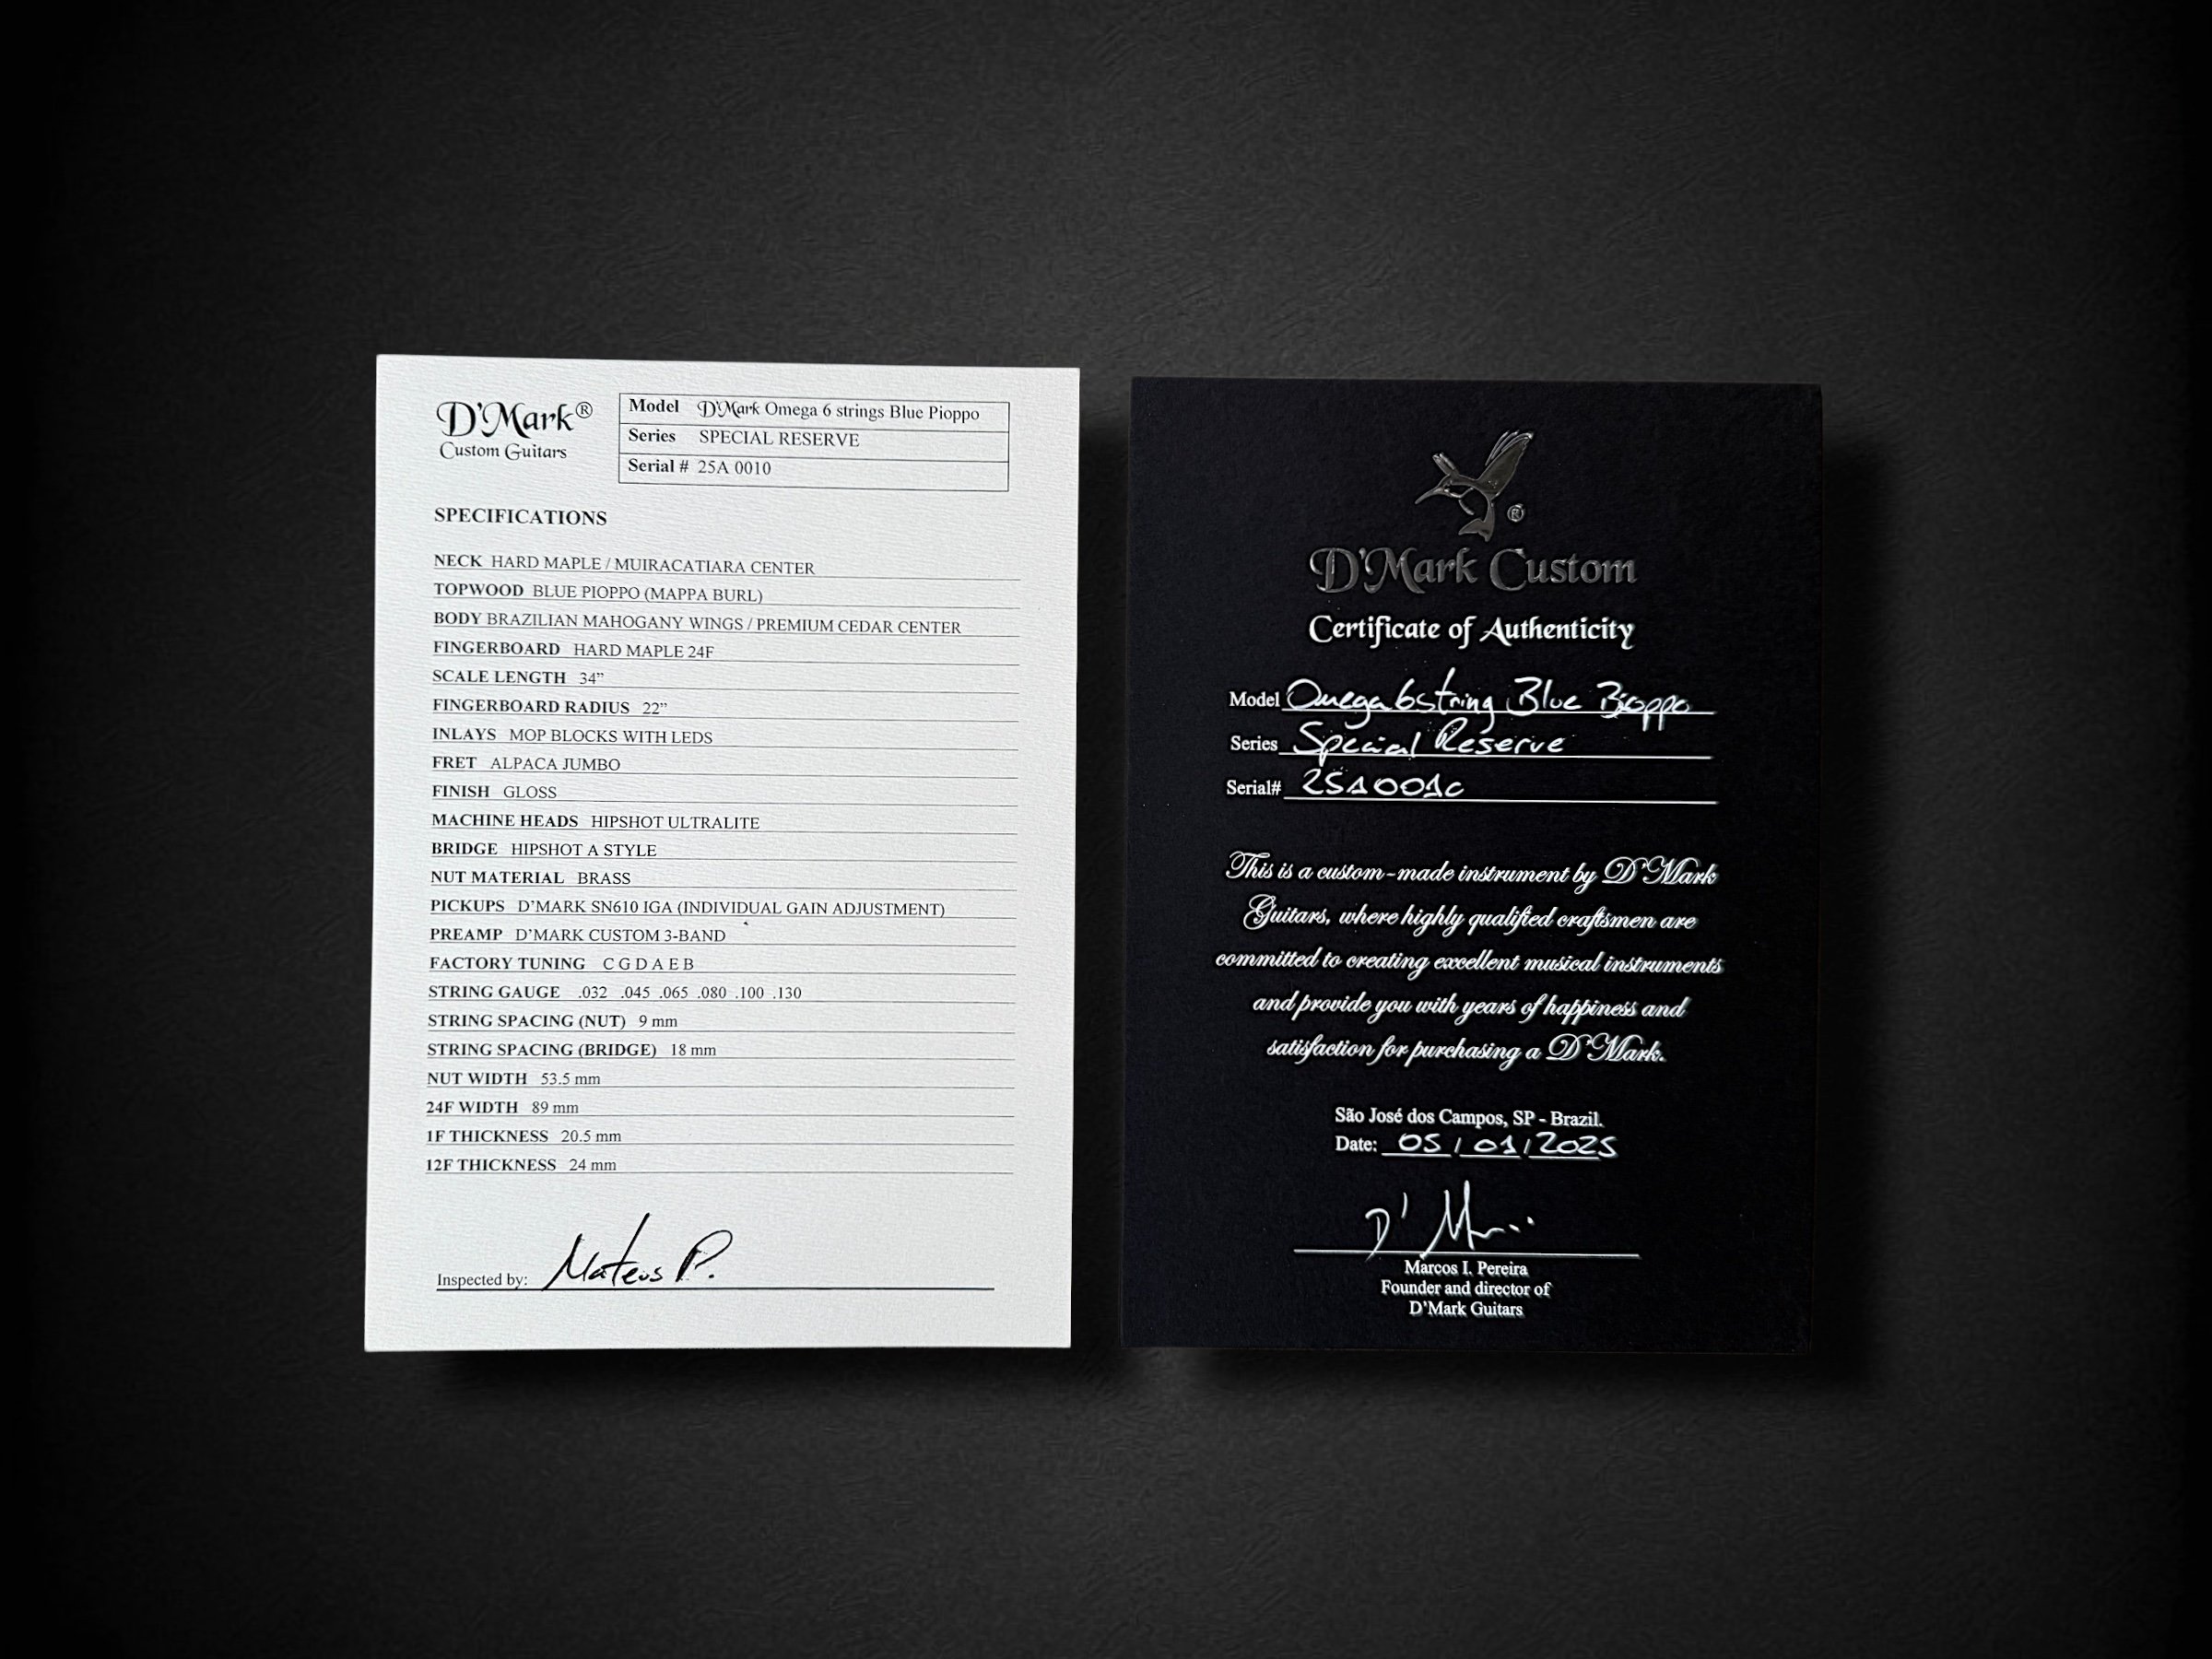 D'Mark®
Custom Guitars
Model D'Mark Omega 6 strings Blue Pioppo
Series SPECIAL RESERVE
Serial # 25A 0010
SPECIFICATIONS
NECK HARD MAPLE / MUIRACATIARA CENTER
TOPWOOD BLUE PIOPPO (MAPPA BURL)
BODY BRAZILIAN MAHOGANY WINGS / PREMIUM CEDAR CENTER
FINGERBOARD HARD MAPLE 24F
SCALE LENGTH 34”
FINGERBOARD RADIUS 22”
INLAYS MOP BLOCKS WITH LEDS
FRET ALPACA JUMBO
FINISH GLOSS
MACHINE HEADS HIPSHOT ULTRALITE
BRIDGE HIPSHOT A STYLE
NUT MATERIAL BRASS
PICKUPS D’MARK SN610 IGA (INDIVIDUAL GAIN ADJUSTMENT)
PREAMP D’MARK CUSTOM 3-BAND
FACTORY TUNING C G D A E B
STRING GAUGE .032 .045 .065 .080 .100 .130
STRING SPACING (NUT) 9 mm
STRING SPACING (BRIDGE) 18 mm
NUT WIDTH 53.5 mm
24F WIDTH 89 mm
1F THICKNESS 20.5 mm
12F THICKNESS 24 mm
Inspected by: Mateus P.
®
D'Mark Custom
Certificate of Authenticity
Model Omega 6string Blue Pioppo
Series Special Reserve
Serial# 25A0010
This is a custom-made instrument by D'Mark
Guitars, where highly qualified craftsmen are
committed to creating excellent musical instruments
and provide you with years of happiness and
satisfaction for purchasing a D'Mark.
São José dos Campos, SP - Brazil.
Date: 05/01/2025
Marcos I. Pereira
Founder and director of
D’Mark Guitars